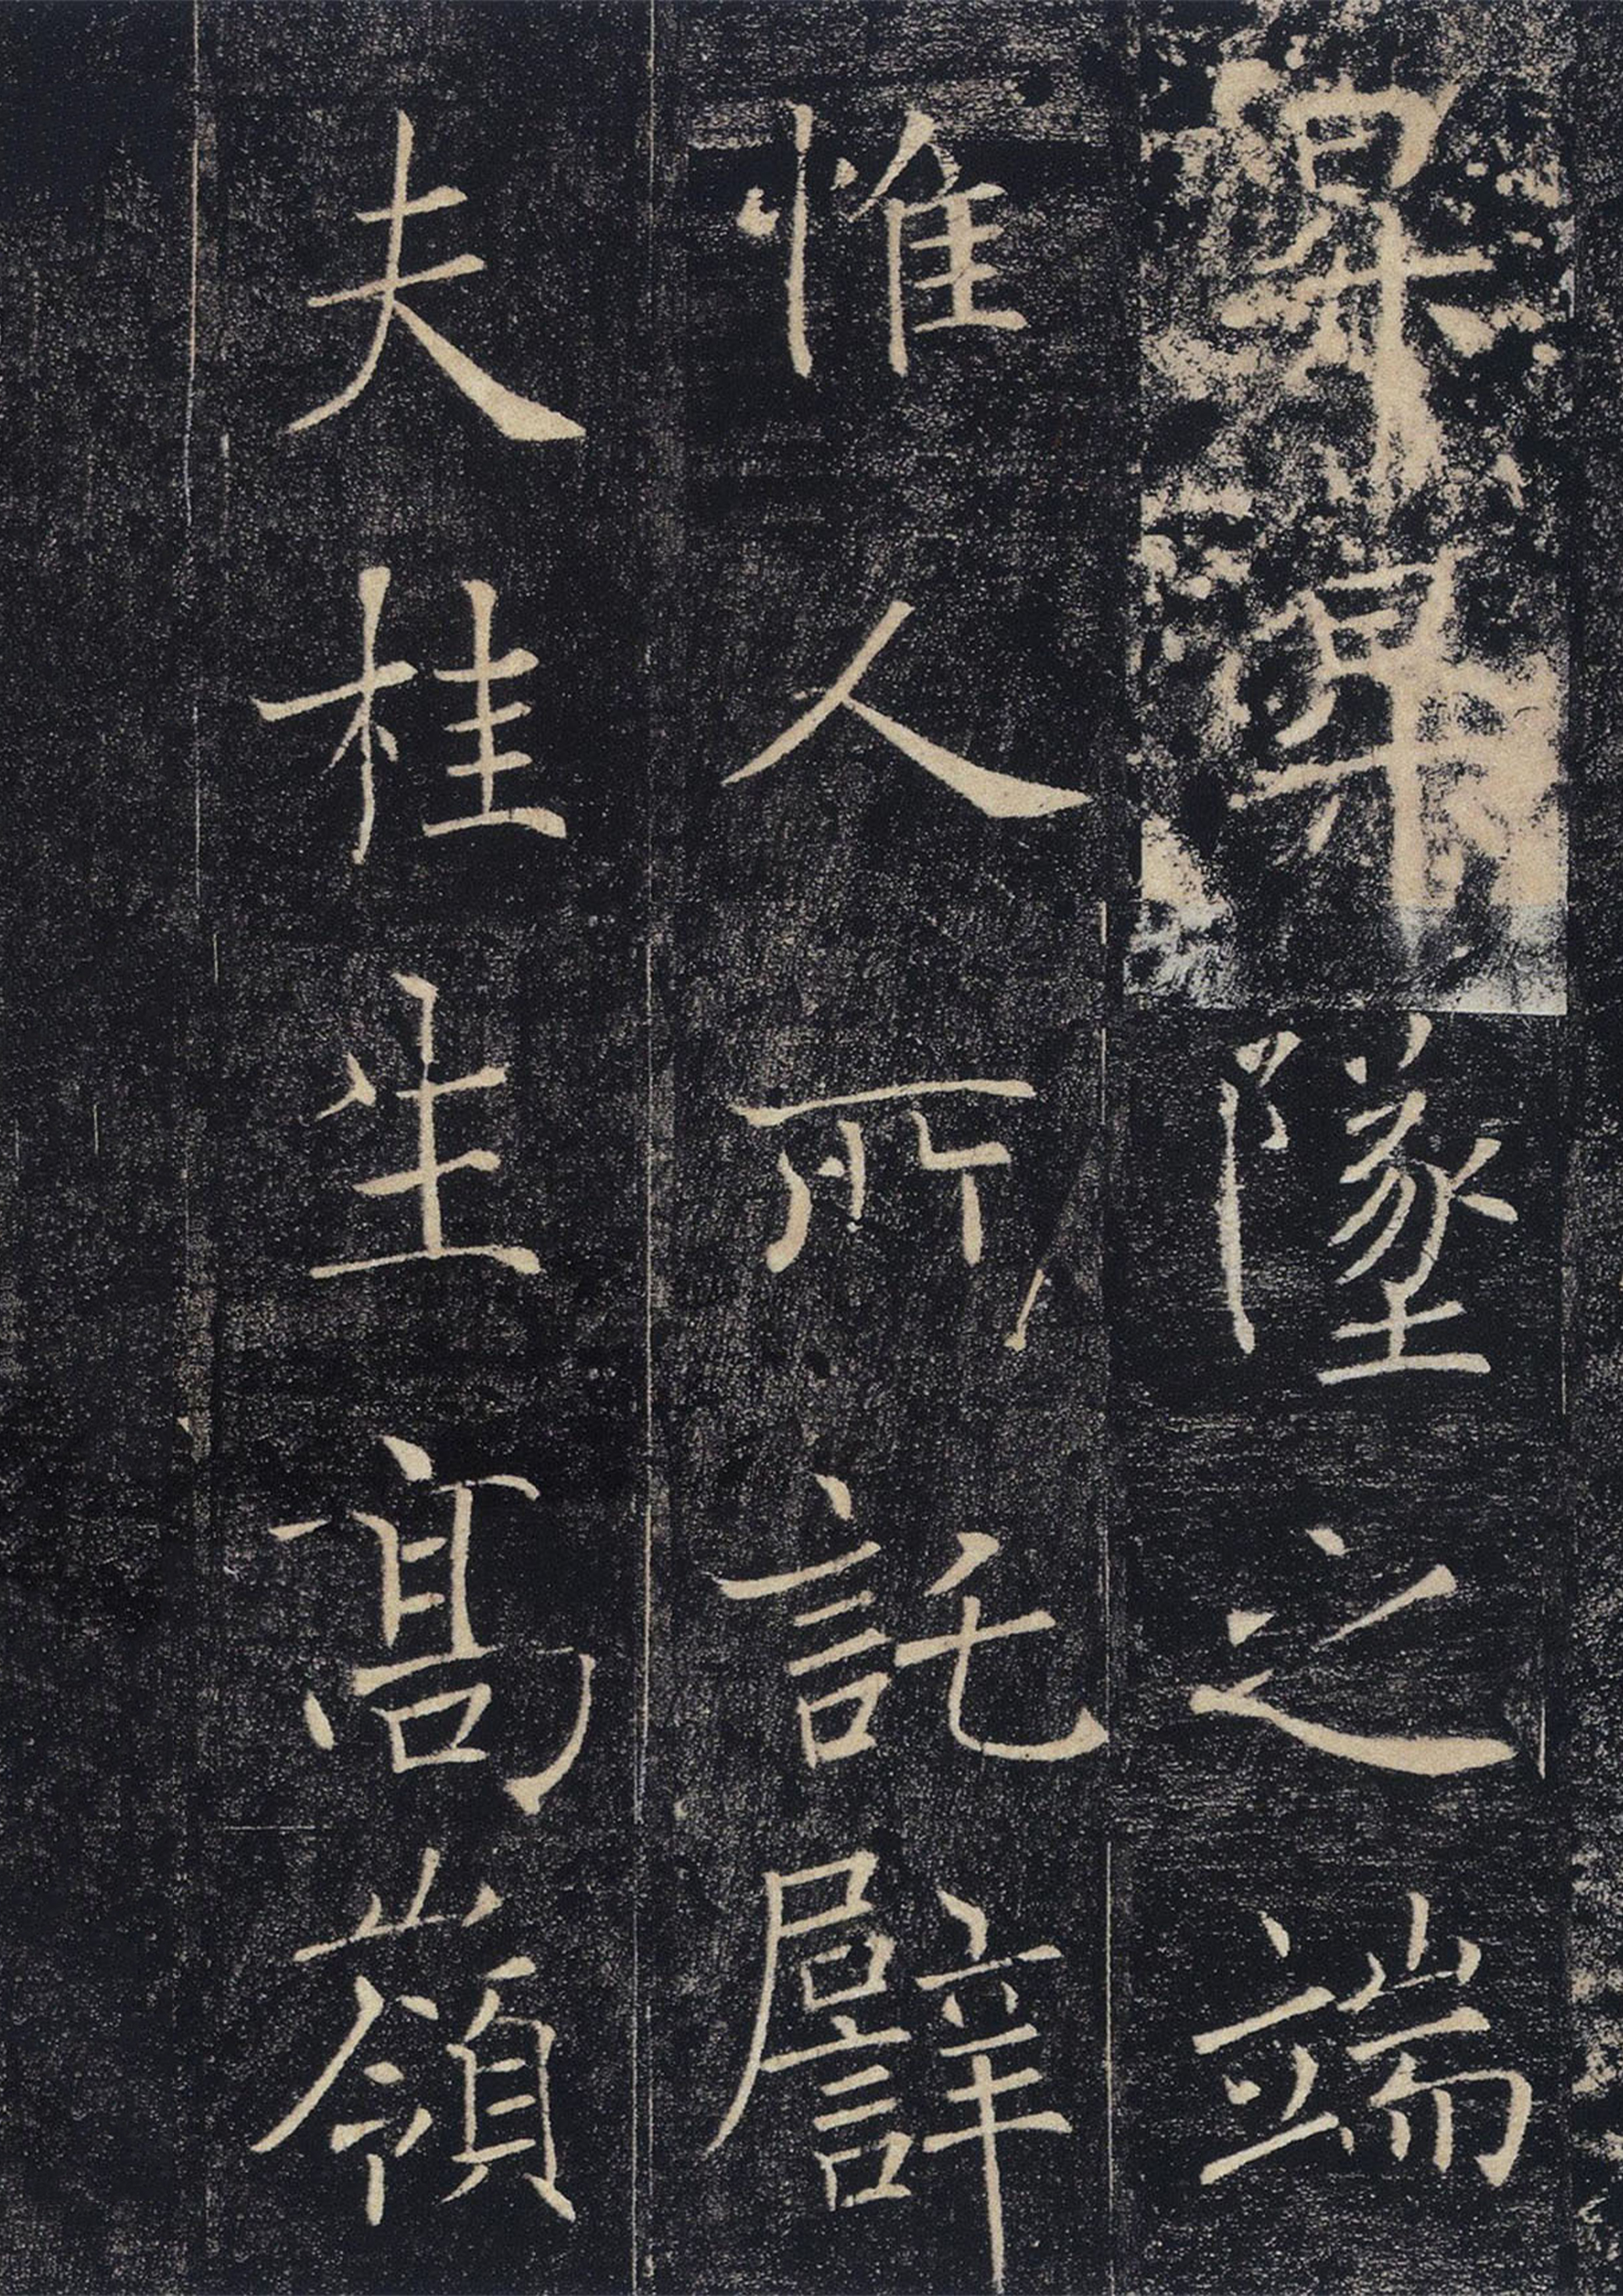 昇昇墜之端
惟人所託譬
夫桂生髙嶺